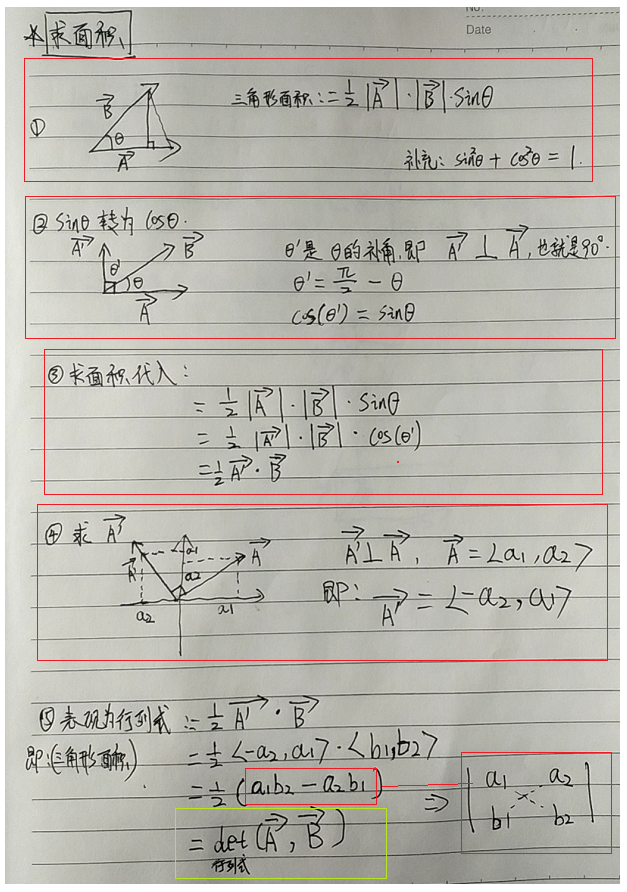 No.
Date
☆ 求面积
① B⃗ θ A⃗
三角形面积:=½|A⃗|·|B⃗|·sinθ
补充: sin²θ + cos²θ = 1.
② sinθ 转为 cosθ.
A⃗' θ' B⃗ θ A⃗
θ'是 θ的补角,即 A⃗' ⊥ A⃗, 也就是90°.
θ' = π/2 - θ
cos(θ') = sinθ
③ 求面积代入:
= ½|A⃗|·|B⃗|·sinθ
= ½|A⃗'|·|B⃗|·cos(θ')
= ½A⃗'·B⃗
④ 求 A⃗'
A⃗' a1 a2 A⃗ a2 a1
A⃗'⊥A⃗, A⃗ = <a1, a2>
即: A⃗' = <-a2, a1>
⑤ 表现为行列式 := ½A⃗'·B⃗
即:(三角形面积) = ½<-a2, a1>·<b1, b2>
= ½(a1b2 - a2b1) ⇒ | a1 a2 |
| b1 b2 |
= det(A⃗, B⃗)
行列式